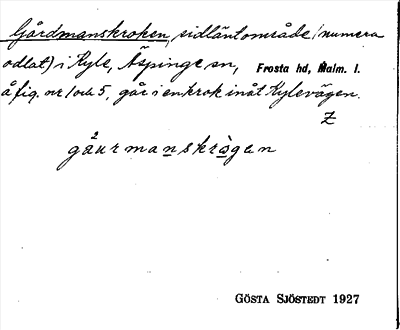 Gårdmanskroken, sidläntområde (numera
odlat) i Kyle, Äspinge sn, Frosta hd, Malm. l.
å fig. nr 1 och 5, går i en krok inåt Kylevägen.
Z
gåurmanskrògen
GÖSTA SJÖSTEDT 1927